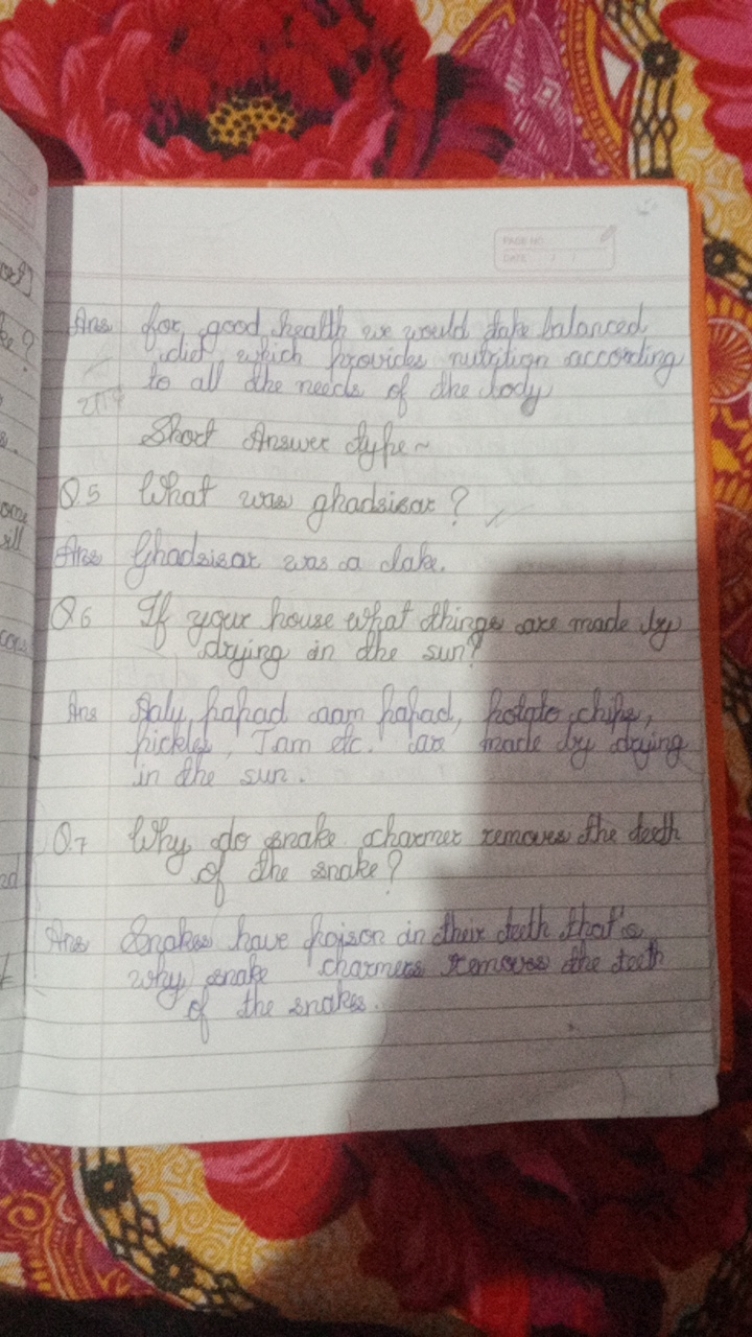 PAGE NO.
DATE / /
Ans for good health we would take balanced
diet which provides nutrition according
to all the needs of the body
Short Answer type ~
Q.5 What was ghadsisar?
Ans Ghadsisar was a lake.
Q6 If your house what things are made by
drying in the sun?
Ans papad aam papad, potato chips,
pickles, Jam etc. are made by drying
in the sun.
Q.7 Why do snake charmer removes the teeth
of the snake?
Ans Snakes have poison in their teeth that's
why snake charmers removes the teeth
of the snakes.